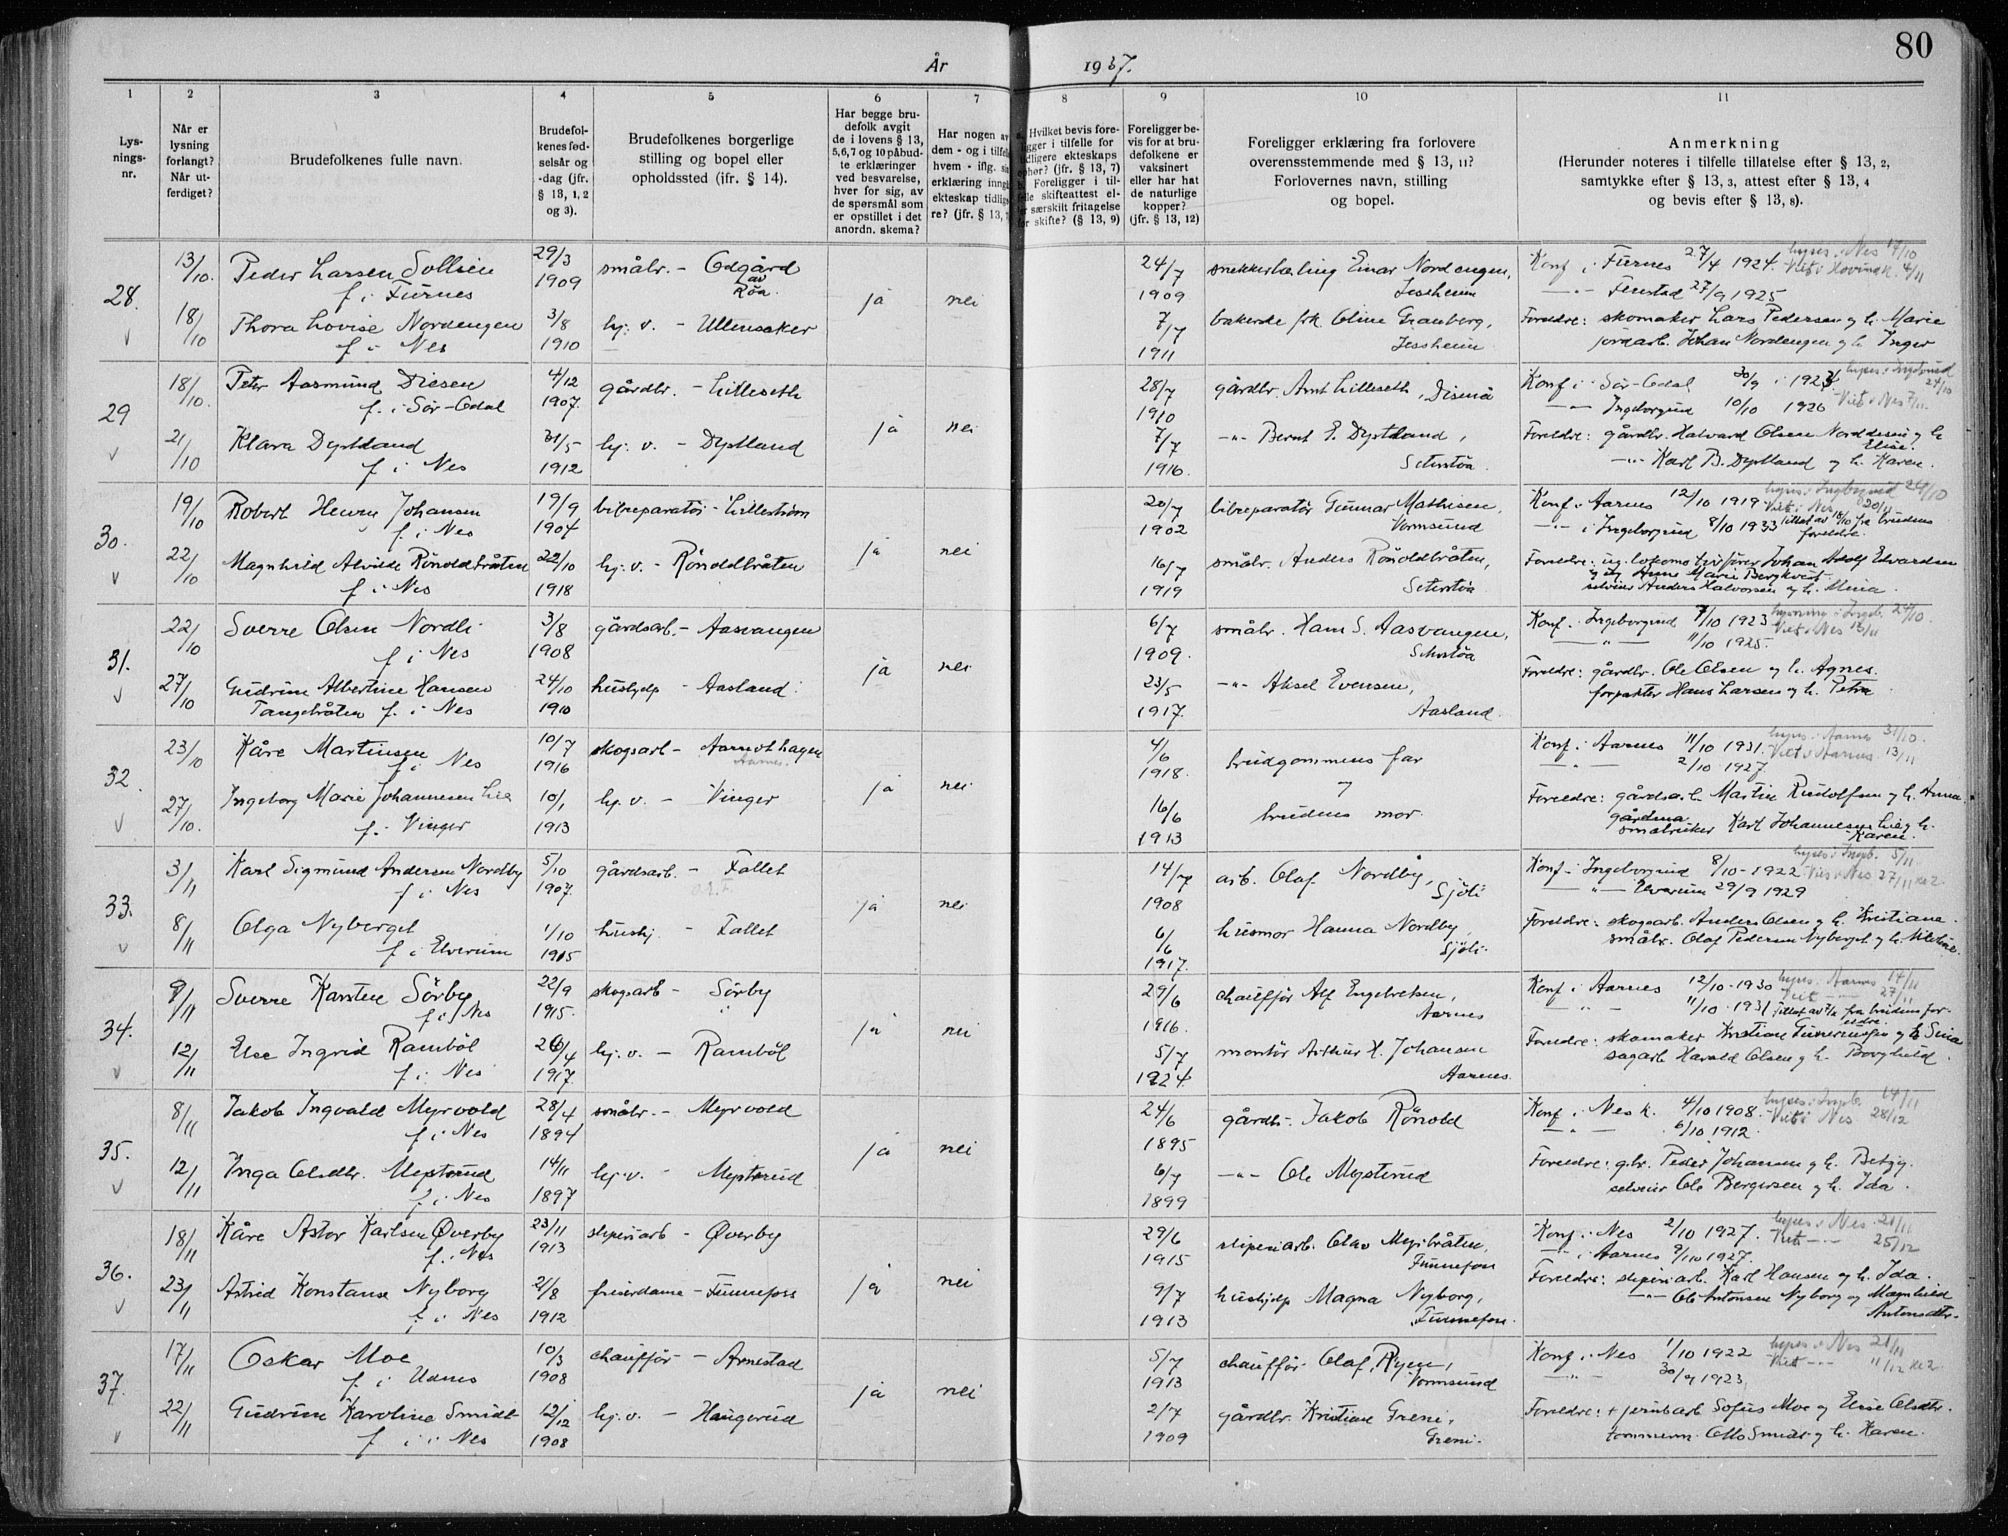 80
År 1937.
1 2 3 4 5 6 7 8 9 10 11
Lys-
nings-
nr.
Når er
lysning
forlangt?
Når ut-
ferdiget?
Brudefolkenes fulle navn.
Brudefol-
kenes fød-
selsår og
-dag (jfr.
§ 13, 1, 2
og 3).
Brudefolkenes borgerlige
stilling og bopel eller
opholdssted (ifr. § 14).
Har begge bru-
defolk avgit
de i lovens § 13,
5,6,7 og 10 påbud-
te erklæringer
ved besvarelse,
hver for sig, av
de spørsmål som
er opstillet i det
anordn. skema?
Har nogen av
dem - og i tilfelle
hvem - iflg. sin
erklæring inngåt
ekteskap tidlige-
re? (jfr. § 13, 7
Hvilket bevis fore-
ligger i tilfelle for
tidligere ekteskaps
ophør? (jfr. § 13, 7)
b. Foreligger i til-
felle skifteattest el-
ler særskilt fritagelse
for skifte? (§ 13, 9)
Foreligger be-
vis for at bru-
defolkene er
vaksinert
eller har hat
de naturlige
kopper?
(jfr. § 13, 12)
Foreligger erklæring fra forlovere
overensstemmende med § 13, 11?
Forlovernes navn, stilling
og bopel.
Anmerkning
(Herunder noteres i tilfelle tillatelse efter § 13, 2,
samtykke efter § 13, 3, attest efter § 13, 4
og bevis efter § 13, 8).
28. 13/10. Peder Larsen Sollien 29/3 1909 småbr. - Odgård ja nei 24/7 1909 snekkerlærling Einar Nordengen, Konf. i Furnes 27/4 1924. lyses i Nes 17/10
f. i Furnes av Røa Jessheim 27/9 1925 Viet i Hovind k. 4/11
18/10 Thora Lovise Nordengen 3/8 1910 hj. v. - Ullensaker 7/7 1911 Oline Granberg, Foreldre: skomaker Lars Pedersen og h. Marie
f. i Nes Jessheim jordarb. Johan Nordengen og h. Inger
29 18/10. Peter Aasmund Disen 4/12 1907. gårdbr. - Lilleseth ja nei 28/7 1910 gårdbr. Arnt Lilleseth, Disenå Konf. i Sør-Odal 30/9 24/10
f. i Sør-Odal Ingeborgrud 10/10 1926 Viet i Nes 7/11.
21/10 Klara Dystland 31/5 1912 hj. v. - Dystland 7/7 1916. -"- Bernt E. Dystland, Foreldre: gårdbr. Halvard Olsen og h. Elise.
f. i Nes Seterstøa. -"- Karl B. Dystland og h. Karen.
30. 19/10 Robert Henry Johansen 17/9 1904 bilreparatør - Lillestrøm ja nei 20/7 1902 bilreparatør Gunnar Mathisen, Konf. i Aarnes 12/10 1919 lyses i Ingeborgrud 24/10
f. i Nes Vormsund - " - i Ingeborgrud 8/10 1933 Viet i Nes 20/11 tillat av 18/10 fra brudens foreldre.
22/10 Magnhild Alvilde Rönoldbråten 22/10 1918 hj. v. - Rönoldbråten 16/7 1919 småbr. Anders Rönoldbråten, Foreldre: Johan Adolf Edvardsen
f. i Nes Seterstøa og Anne Marie Bergkvist.
selveier Anders Halvorsen og h. Mina.
31. 22/10 Sverre Olsen Nordli 3/8 1908 gårdsarb. - Aasvangen ja nei 6/7 1909. småbr. Hans S. Aasvangen, Konf. i Ingeborgrud 7/10 1923 24/10.
f. i Nes Seterstøa - " - 11/10 1925. Viet i Nes
27/10 Gudrun Albertine Hansen 24/10 1910 hushjelp - Aasland. 23/5 1917. -"- Aksel Evensen, Foreldre: gårdbr. Ole Olsen og h. Agnes.
Tangebråten f. i Nes Aasland. forpakter Hans Larsen og h. Petra.
32. 23/10 Kåre Martinsen 10/7 1916 skogsarb. - Aarnothagen ja nei 4/6 1918. brudgommens far Konf. i Aarnes 11/10 1931. lyses i Aarnes 31/10.
f. i Nes Aarnes. og - " - 2/10 1927 Viet i Aarnes 13/11
27/10. Ingeborg Marie Johannesen Lie 10/1 1913 hj. v. - Vinger 16/6 1913 brudens mor. Foreldre: gårdsarb. Martin Rudolfsen og h. Anna.
f. i Vinger småbruker Karl Johannesen Lie og h. Karen.
33. 3/11 Karl Sigmund Andersen Nordby 5/10 1907. gårdsarb. - Fallet ja nei 14/7 1908 arb. Olaf Nordby, Konf. i Ingeborgrud 8/10 - 1922 lyses i Ingeb. 5/11
f. i Nes Sjöli - " - Elverum 29/9 1929 Viet i Nes 27/11 kl 2.
8/11 Olga Nyberget 1/10 1915 hushj. - Fallet 6/6 1917. husmor Hanna Nordby, Foreldre: skogsarb. Anders Olsen og h. Kristiane.
f. i Elverum Sjöli. småbr. Olaf Pedersen Nyberget og h.
34. 9/11 Sverre Karsten Sörby 22/9 1915. skogsarb. - Sörby ja nei 29/6 1916. chauffør Alf Engebretsen, Konf. i Aarnes 12/10 - 1930 lyses i Aarnes 14/11
f. i Nes Aarnes - " - 11/10 - 1931 Viet - " - 27/11 tillat. av fra brudens foreldre.
12/11 Else Ingrid Ramböl 26/4 1917. hj. v. - Ramböl 5/7 1924. montör Arthur H. Johansen Foreldre: skomaker Kristian og h. Sina
f. i Nes Aarnes. sagarb. Harald Olsen og h. Borghild.
35. 8/11 Jakob Ingvald Myrvold 28/4 1894 småbr. - Myrvold ja nei 24/6 1895 gårdbr. Jakob Rönold Konf. i Nes k. 4/10 1908. lyses i Ingeb. 14/11
f. i Nes - " - 6/10 1912. Viet i Nes 28/12
12/11 Inga Olsdtr. Mysterud 14/11 1897 hj. v. - Mysterud 6/7 1899 -"- Ole Mysterud Foreldre: gbr. Peder Johansen og h. Betzy.
f. i Nes selveier Ole Bergersen og h. Ida.
36. 18/11 Kåre Astor Karlsen Øverby 23/11 1913 sliperiarb. - Øverby ja nei 29/6 1915 sliperiarb. Olav Mysibråten, Konf. i Nes 2/10 1927. lyses i Nes 21/11
f. i Nes Funnefoss - " - i Aarnes 9/10 1927. Viet - " - 25/12
23/11 Astrid Konstanse Nyborg 2/8 1912 friserdame - Funnefoss 9/7 1913 hushjelp Magna Nyborg, Foreldre: sliperiarb. Karl Hansen og h. Ida.
f. i Nes Funnefoss. -"- Ole Antonsen Nyborg og Magnhild Antonsdtr.
37. 17/11 Oskar Moe 10/3 1908 chauffør - Arnestad ja nei 5/7 1913 chauffør Olaf Ryen, Konf. i Nes 1/10 1922 lyses i Nes 21/11
f. i Udnes Vormsund - " - 30/9 1923. Viet - " - 11/12 kl 2.
22/11 Gudrun Karoline Smidt 12/12 1908 hj. v. - Haugerud 2/7 1909 gårdbr. Kristian Greni, Foreldre: + jernbarb. Sofus Moe og Elise Olsdtr.
f. i Nes Greni. tömmerm. Otto Smidt og h. Karen.